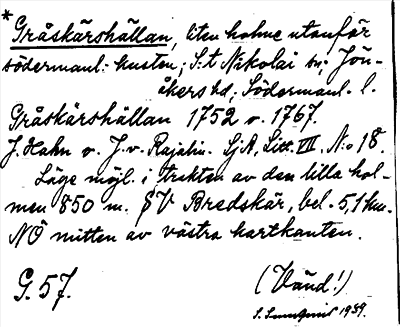 * Gråskärshällan, liten holme utanför
södermanl. kusten; S:t Nikolai sn, Jön-
åkers hd, Södermanl. l.
Gråskärshällan 1752 o. 1767.
J. Hahn o. J. v. Rajalin. SjA, Litt. VIII. No 18.
Läge möjl. i trakten av den lilla hol-
men 850 m. SV Bredskär, bel. 5,1 km.
NÖ mitten av västra kartkanten.
G. 57.
(Vänd!)
1939.